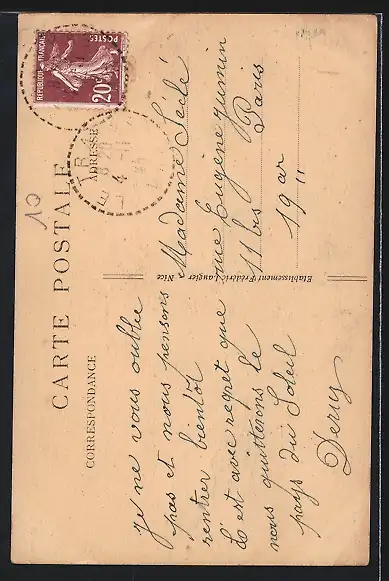 CARTE POSTALE
CORRESPONDANCE
ADRESSE
REPUBLIQUE FRANÇAISE
POSTES
20c
10
je ne vous oublie
pas et nous pensons
rentrer bientôt
C'est avec regret que
nous quitterons le
pays du Soleil
Madame
rue Eugène Jumin
11 bis Paris
19 ar
Etablissement Frédéric Laugier, Nice